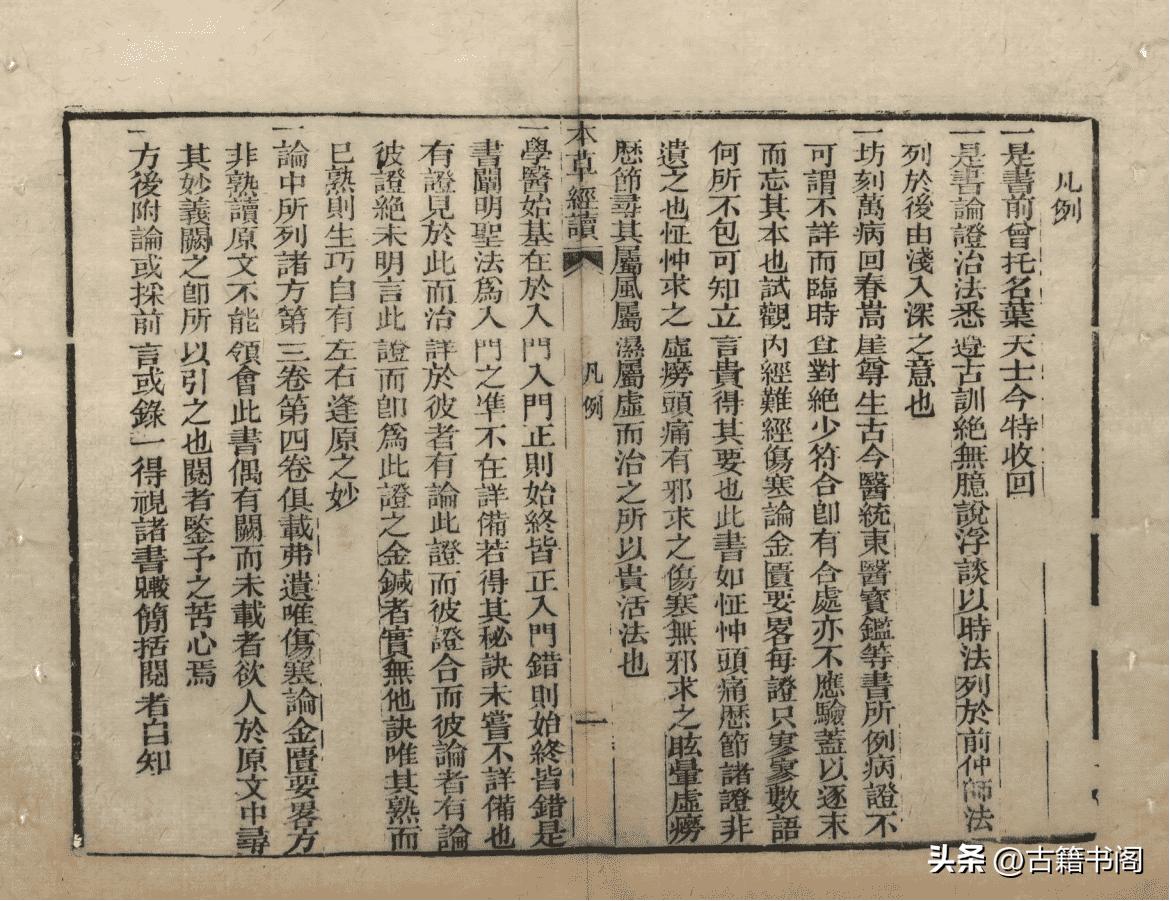 凡例
一是書前曾托名葉天士今特收回
一是書論證治法悉遵古訓絶無臆說浮談以時法列於前仲師法
列於後由淺入深之意也
一坊刻萬病回春嵩崖尊生古今醫統東醫寶鑑等書所例病證不
可謂不詳而臨時查對絶少符合卽有合處亦不應驗蓋以逐末
而忘其本也試觀內經難經傷寒論金匱要畧每證只寥寥數語
何所不包可知立言貴得其要也此書如怔忡頭痛歷節諸證非
遺之也怔忡求之虛癆頭痛有邪求之傷寒無邪求之眩暈虛癆
歷節尋其屬風屬濕屬虛而治之所以貴活法也
本草經讀
凡例
一
一學醫始基在於入門入門正則始終皆正入門錯則始終皆錯是
書闡明聖法爲入門之準不在詳備若得其秘訣未嘗不詳備也
有證見於此而治詳於彼者有論此證而彼證合而彼論者有論
彼證絶未明言此證而卽爲此證之金鍼者實無他訣唯其熟而
已熟則生巧自有左右逢原之妙
一論中所列諸方第三卷第四卷俱載弗遺唯傷寒論金匱要畧方
非熟讀原文不能領會此書偶有闕而未載者欲人於原文中尋
其妙義闕之卽所以引之也閱者鑒予之苦心焉
一方後附論或採前言或錄一得視諸書較簡括閱者自知
头条 @古籍书阁